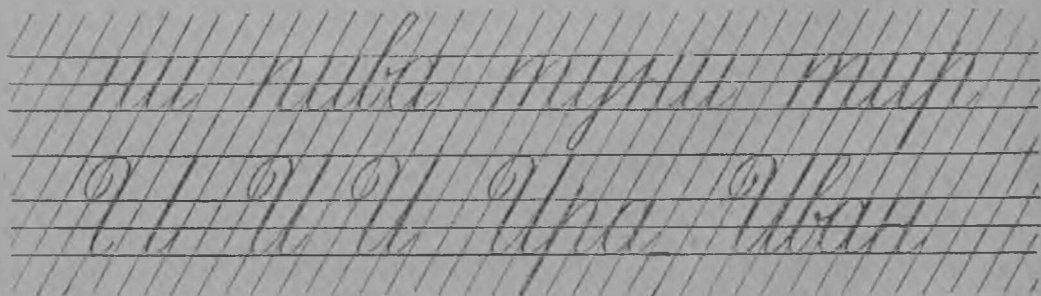 пи пива тупи тир
И И И Ира Иван